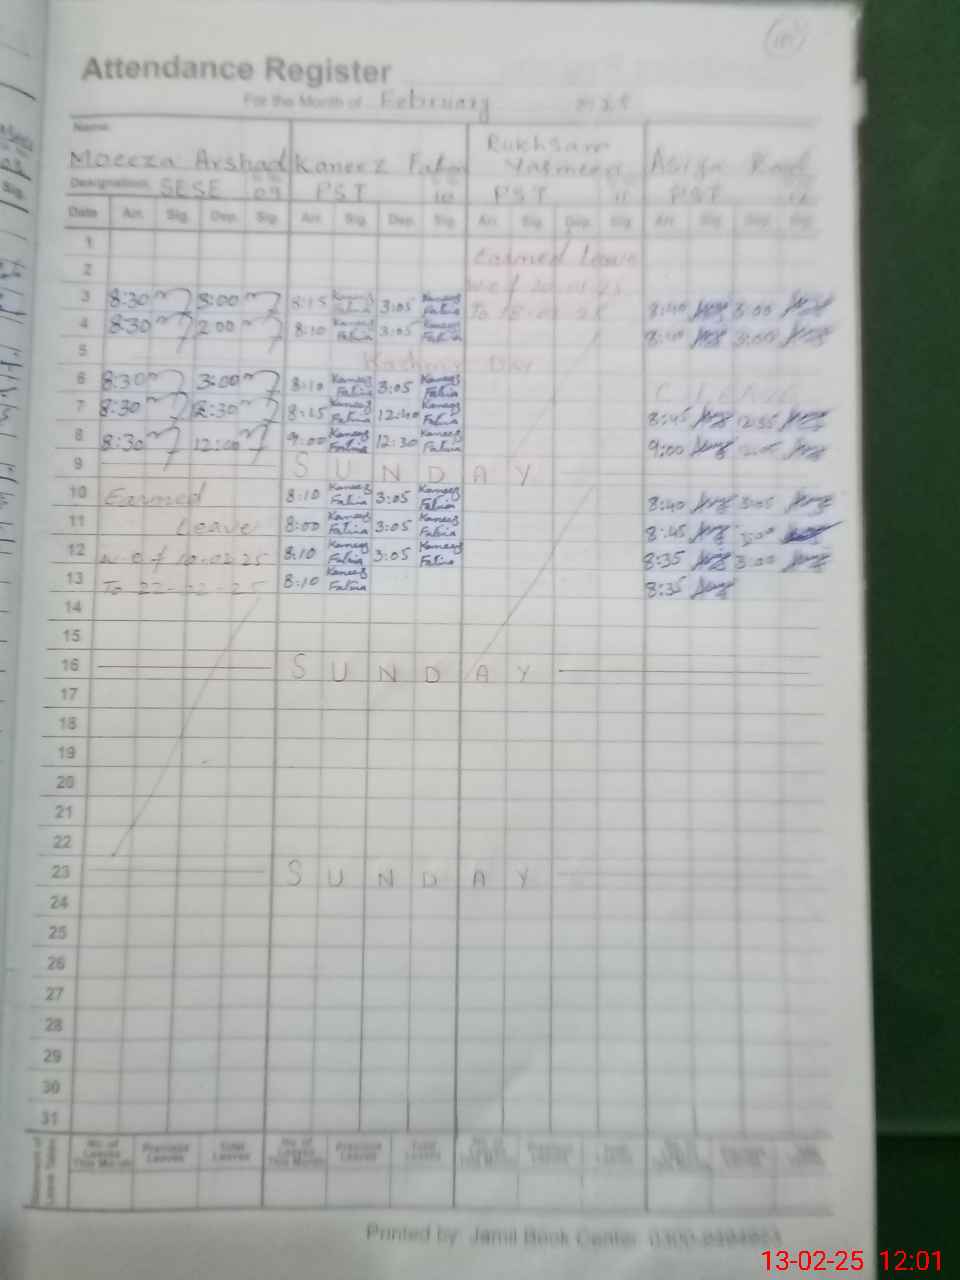 Attendance Register
For the Month of February
Name
Moeeza Arshad Kaneez Fatima Rukhsana Yasmeen Asifa
Designation SESE 09 PST 10 PST 11 PST 12
Date Arr. Sig. Dep. Sig. Arr. Sig. Dep. Sig. Arr. Sig. Dep. Sig. Arr. Sig. Dep. Sig.
1 Earned Leave
2 w.e.f
3 8:30 3:00 8:15 Kaneez Fatima 3:05 Kaneez Fatima To 8:40 3:00
4 8:30 2:00 8:10 Kaneez Fatima 3:05 Kaneez Fatima 8:40 3:00
5 Kashmir Day
6 8:30 3:00 8:10 Kaneez Fatima 3:05 Kaneez Fatima
7 8:30 2:30 8:15 Kaneez Fatima 12:40 Kaneez Fatima 8:45 12:35
8 8:30 12:00 9:00 Kaneez Fatima 12:30 Kaneez Fatima 9:00
9 S U N D A Y
10 Earned 8:10 Kaneez Fatima 3:05 Kaneez Fatima 8:40 3:05
11 Leave 8:00 Kaneez Fatima 3:05 Kaneez Fatima 8:45 3:00
12 w.e.f 10-02-25 8:10 Kaneez Fatima 3:05 Kaneez Fatima 8:35 3:00
13 To 22-02-25 8:10 Kaneez Fatima 8:35
14
15
16 S U N D A Y
17
18
19
20
21
22
23 S U N D A Y
24
25
26
27
28
29
30
31
No. of Leaves This Month Previous Leaves Total Leaves No. of Leaves This Month Previous Leaves Total Leaves
Printed by: Jamil Book Center
13-02-25 12:01